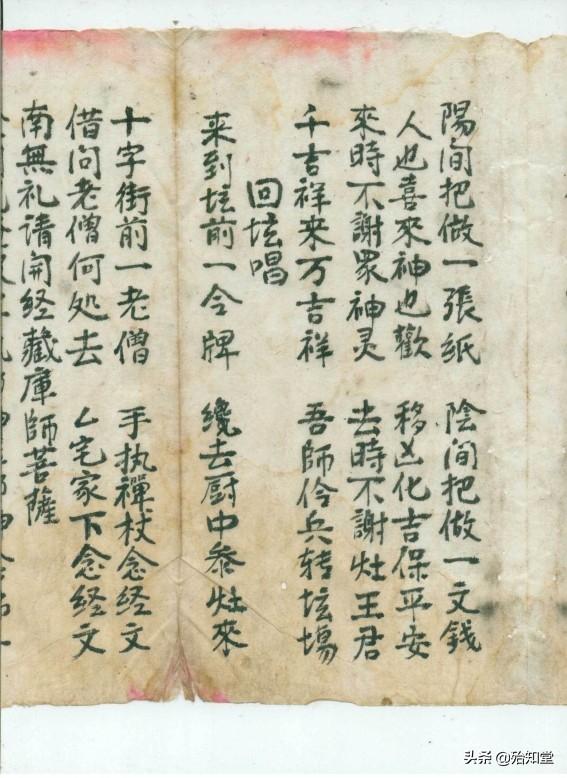 陽间把做一張纸 陰间把做一文錢
人也喜來神也歡 移凶化吉保平安
來時不謝眾神灵 去時不謝灶王君
千吉祥来万吉祥 吾師伶兵转坛場
回坛唱
来到坛前一令牌 纔去厨中参灶來
十字街前一老僧 手执禪杖念经文
借问老僧何处去 厶宅家下念经文
南無礼请開经藏庫師菩薩
头条 @殆知堂